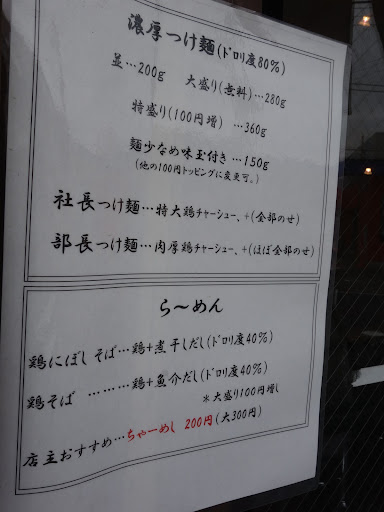 濃厚つけ麺(ドロリ度80%)
並…200g 大盛り(無料)…280g
特盛り(100円増) …360g
麺少なめ味玉付き…150g
(他の100円トッピングに変更可。)
社長つけ麺…特大鶏チャーシュー、+(全部のせ)
部長つけ麺…肉厚鶏チャーシュー、+(ほぼ全部のせ)
ら～めん
鶏にぼしそば…鶏+煮干しだし(ドロリ度40%)
鶏そば ………鶏+魚介だし(ドロリ度40%)
*大盛り100円増し
店主おすすめ…ちゃーめし 200円(大300円)